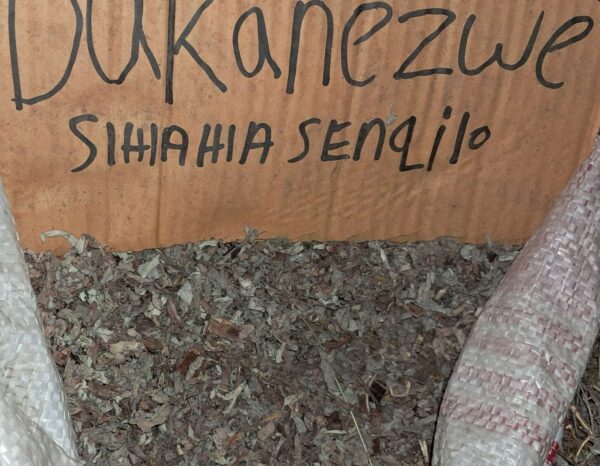 Dukanezwe
SIHlAHlA SENqilo